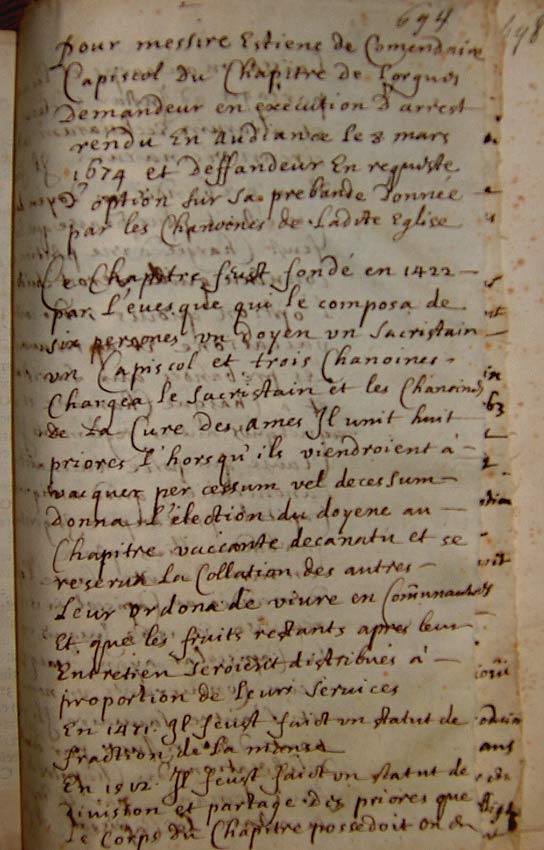 694
698
pour messire Estiene de Comendaire
Capiscol du Chapitre de Lorgues
Demandeur en execution d'arrest
rendu En audiance le 8 mars
1674 et deffandeur En requeste
d'option sur sa prebande donnée
par les Chanoënes de Ladite Eglise
Ce Chapitre feust fondé en 1422
par L'évesque qui le composa de
six persones un doyen un Sacristain
un Capiscol et trois Chanoines
Chargea le Sacristain et les Chanoines
de La Cure des ames Il unit huit
priores l'horsqu'ils viendroient à
vacquer per cessum vel decessum
donna l'élection du doyene au
Chapitre vaccante decanatu et se
reserva La Collation des autres
Leur ordona de vivre en Communauté
Et que les fruits restants apres leur
Entretien seroient distribués à
proportion de leurs services
En 1471 Il feust faict un statut de
fraction de La mense
En 1512 Il feust faict un statut de
division et partage des priores que
le Corps du Chapitre possedoit on